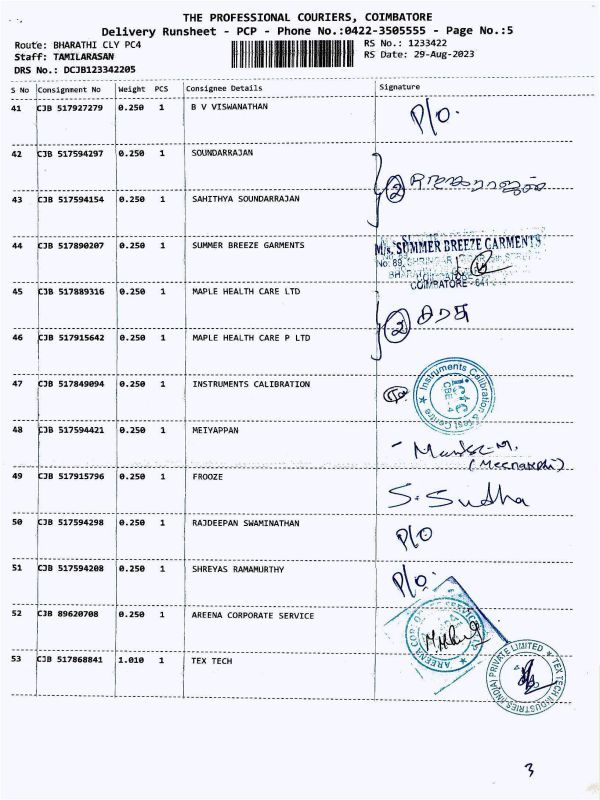 THE PROFESSIONAL COURIERS, COIMBATORE
Delivery Runsheet - PCP - Phone No.:0422-3505555 - Page No.:5
Route: BHARATHI CLY PC4 RS No.: 1233422
Staff: TAMILARASAN RS Date: 29-Aug-2023
DRS No.: DCJB123342205
S No Consignment No Weight PCS Consignee Details Signature
41 CJB 517927279 0.250 1 B V VISWANATHAN P/O.
42 CJB 517594297 0.250 1 SOUNDARRAJAN
2
43 CJB 517594154 0.250 1 SAHITHYA SOUNDARRAJAN
44 CJB 517890207 0.250 1 SUMMER BREEZE GARMENTS M/s. SUMMER BREEZE GARMENTS
COIMBATORE - 641
45 CJB 517889316 0.250 1 MAPLE HEALTH CARE LTD
2
46 CJB 517915642 0.250 1 MAPLE HEALTH CARE P LTD
47 CJB 517849094 0.250 1 INSTRUMENTS CALIBRATION Instruments Calibration & Test Centre
48 CJB 517594421 0.250 1 MEIYAPPAN
(Meenakshi)
49 CJB 517915796 0.250 1 FROOZE S. Sudha
50 CJB 517594298 0.250 1 RAJDEEPAN SWAMINATHAN P/O
51 CJB 517594208 0.250 1 SHREYAS RAMAMURTHY P/O.
52 CJB 89620708 0.250 1 AREENA CORPORATE SERVICE
53 CJB 517868841 1.010 1 TEX TECH TEX TECH INDUSTRIES (INDIA) PRIVATE LIMITED
3